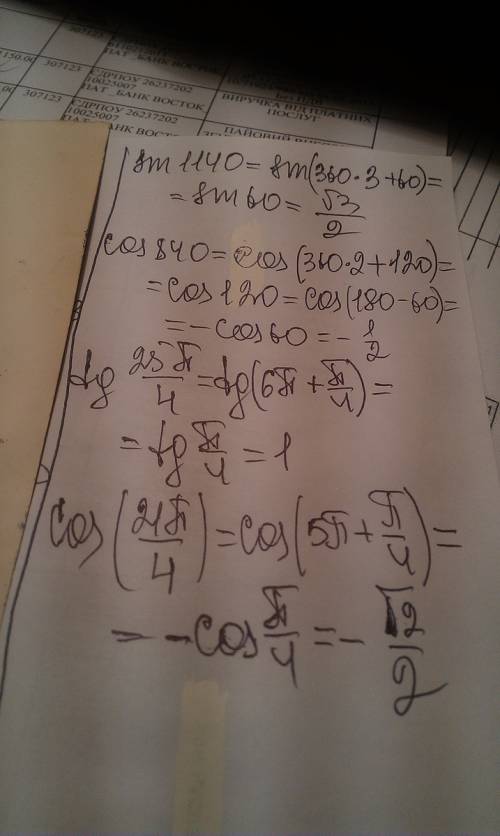 307123
1150.00 307123 ЄДРПОУ 26237202
10025007
ПАТ _БАНК ВОСТОК
ВИРУЧКА ВІД ПЛАТНИХ
ПОСЛУГ
.00 307123 ЄДРПОУ 26237202
10025007
ПАТ _БАНК ВОСТОК
ПАЙОВИЙ
sin 1140 = sin(360·3+60) =
= sin 60 = √3/2
cos 840 = cos(360·2+120) =
= cos 120 = cos(180-60) =
= -cos 60 = -1/2
tg 25π/4 = tg(6π + π/4) =
= tg π/4 = 1
cos(21π/4) = cos(5π + π/4) =
= -cos π/4 = -√2/2